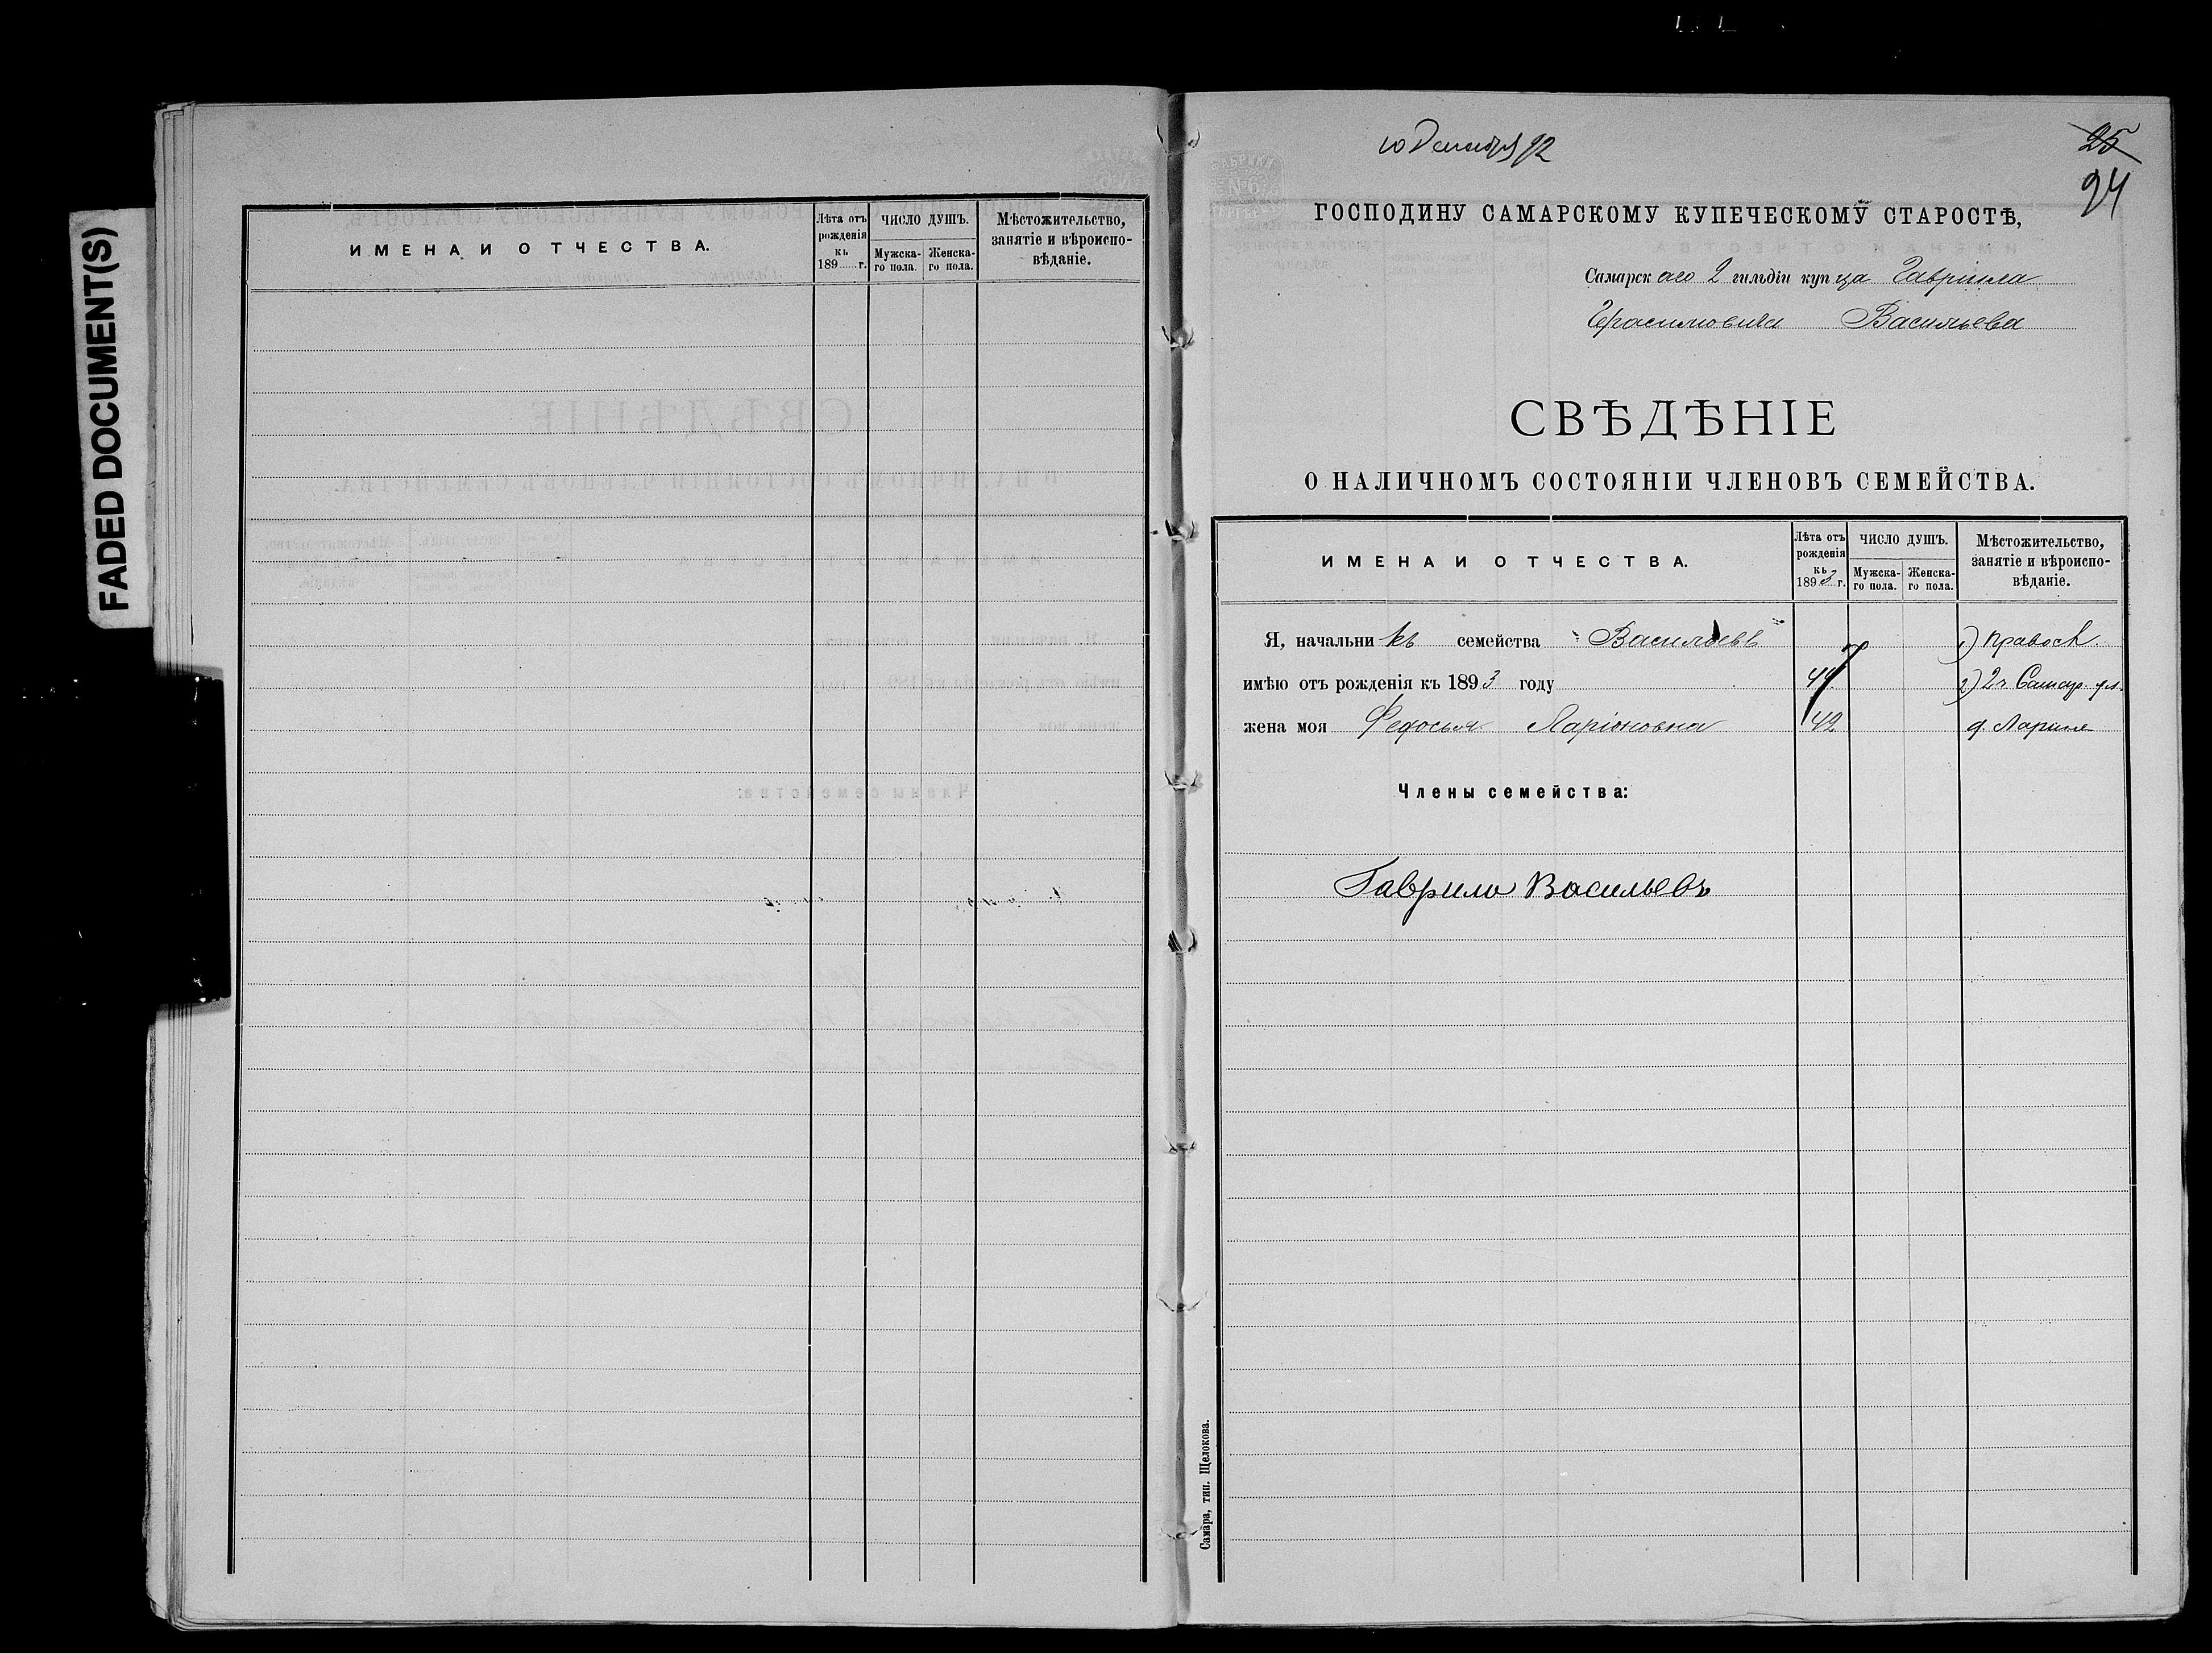 FADED DOCUMENT(S)
ИМЕНА И ОТЧЕСТВА.
Лѣта отъ рожденія къ 189 г.
ЧИСЛО ДУШЪ.
Мужска-го пола.
Женска-го пола.
Мѣстожительство, занятіе и вѣроиспо-вѣданіе.
10 Декабря 92
25
94
ГОСПОДИНУ САМАРСКОМУ КУПЕЧЕСКОМУ СТАРОСТѢ,
Самарскаго 2 гильдіи купца Гавріила
Герасимовича Васильева
СВѢДѢНІЕ
О НАЛИЧНОМЪ СОСТОЯНІИ ЧЛЕНОВЪ СЕМЕЙСТВА.
ИМЕНА И ОТЧЕСТВА.
Лѣта отъ рожденія къ 1893 г.
ЧИСЛО ДУШЪ.
Мужска-го пола.
Женска-го пола.
Мѣстожительство, занятіе и вѣроиспо-вѣданіе.
Я, начальникъ семейства Васильевъ 1) правосл.
имѣю отъ рожденія къ 1893 году 2) 2 ч. Самар.
жена моя Федосья Ларіоновна 42 д. Ларина
Члены семейства:
Гаврило Васильевъ
Самара, тип. Щелокова.